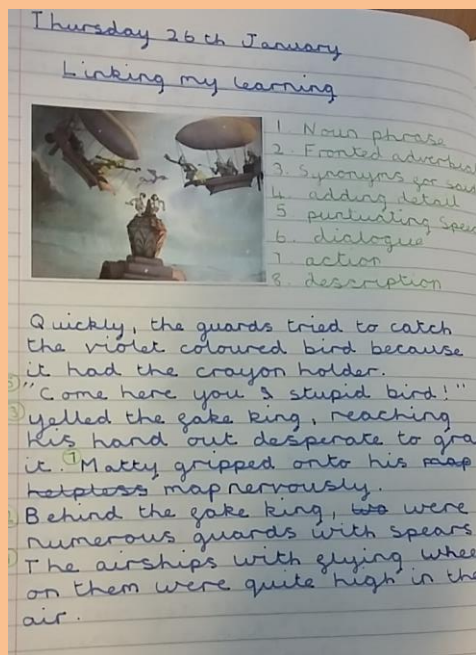 Thursday 26th January
Linking my learning
1 Noun phrase
2. Fronted adverbial
3. Synonyms for sa
4. adding detail
5 puntuating Speec
6. dialogue
7. action
8. description
Quickly, the guards tried to catch
the violet coloured bird because
it had the crayon holder.
"Come here you stupid bird!"
3 yelled the fake king, reaching
his hand out desperate to gra
it. 7 Matty gripped onto his map
helpless map nervously.
Behind the fake king, wo were
numerous guards with spears
The airships with flying whee
on them were quite high in the
air.